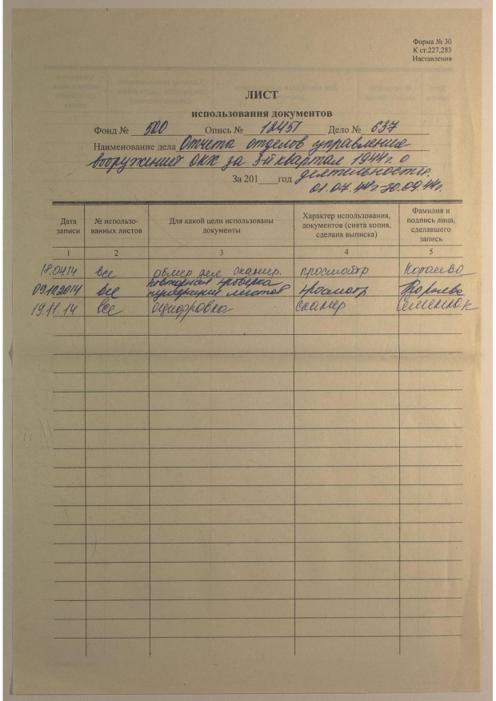 Форма № 30
К ст.227,283
Наставления
ЛИСТ
использования документов
Фонд № 500 Опись № 12451 Дело № 637
Наименование дела Отчета отделов управления
вооружений ОКХ за 3-й квартал 1944г. о
За 201 год деятельности.
01.07.44г-30.09.44г.
Дата записи № использованных листов Для какой цели использованы документы Характер использования, документов (снята копия, сделана выписка) Фамилия и подпись лица, сделавшего запись
1 2 3 4 5
18.04.14 все обмер для сканир. просмотр
повторная проверка
09.10.2014 все нумерации листов просмотр
19.11.14 все оцифровка сканир Семенюк